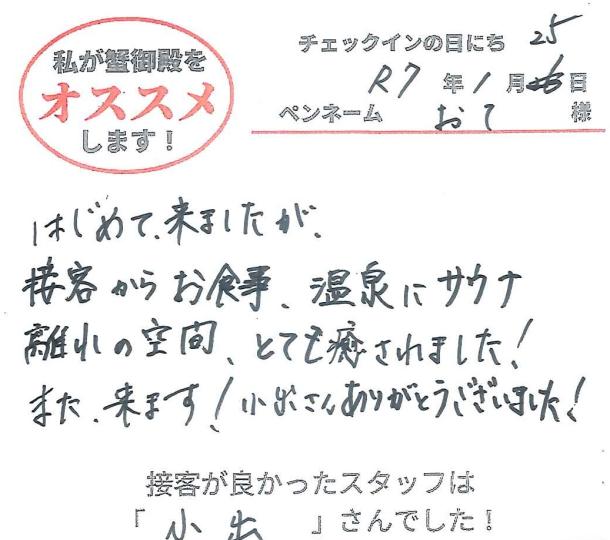 私が蟹御殿を
オススメ
します！
チェックインの日にち 25
R7年1月日
ペンネーム おて 様
はじめて、来ましたが、
接客からお食事、温泉にサウナ
離れの空間、とても癒されました！
また、来ます！小出さんありがとうございました！
接客が良かったスタッフは
「小出」さんでした！